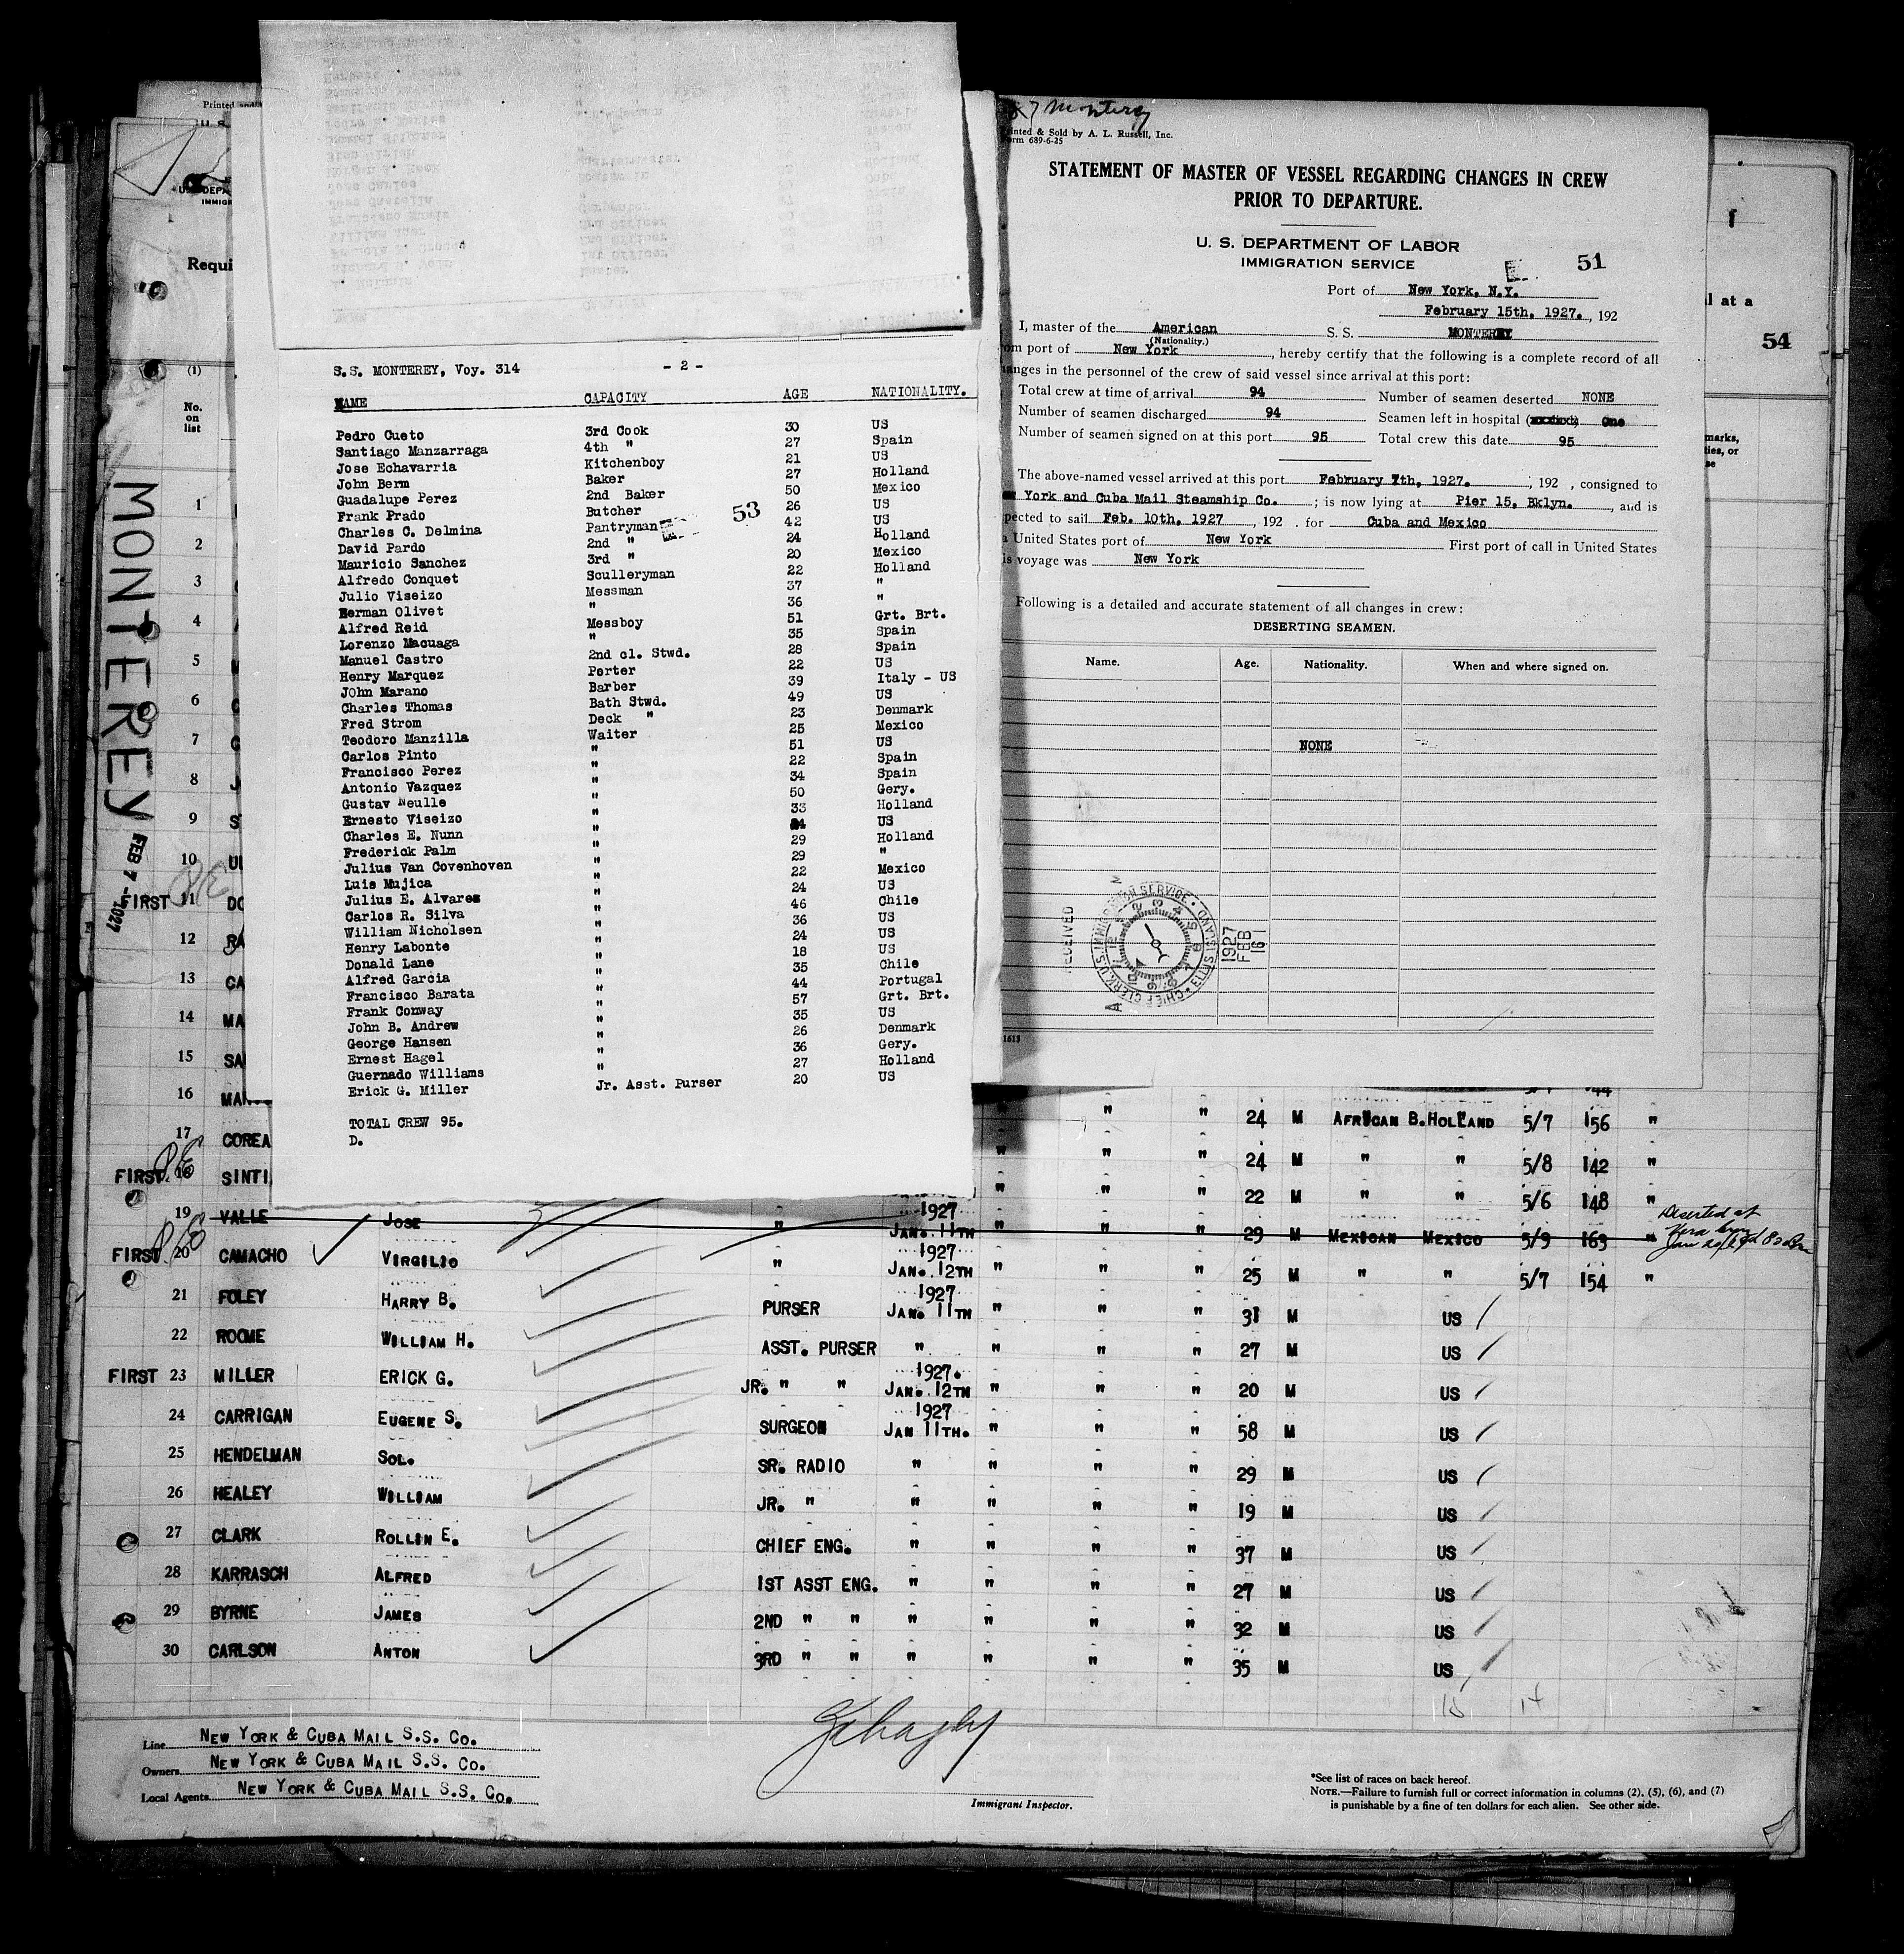 S.S. MONTEREY, Voy. 314 - 2 -
NAME CAPACITY AGE NATIONALITY.
Pedro Cueto 3rd Cook 30 US
Santiago Manzarraga 4th " 27 Spain
Jose Echavarria Kitchenboy 21 US
John Berm Baker 27 Holland
Guadalupe Perez 2nd Baker 50 Mexico
Frank Prado Butcher 26 US
Charles C. Delmina Pantryman 42 US
53
David Pardo 2nd " 24 Holland
Mauricio Sanchez 3rd " 20 Mexico
Alfredo Conquet Sculleryman 22 Holland
Julio Viseizo Messman 37 "
Herman Olivet " 36 "
Alfred Reid Messboy 51 Grt. Brt.
Lorenzo Macuaga " 35 Spain
Manuel Castro 2nd cl. Stwd. 28 Spain
Henry Marquez Porter 22 US
John Marano Barber 39 Italy - US
Charles Thomas Bath Stwd. 49 US
Fred Strom Deck " 23 Denmark
Teodoro Manzilla Waiter 25 Mexico
Carlos Pinto " 51 US
Francisco Perez " 22 Spain
Antonio Vazquez " 34 Spain
Gustav Neulle " 50 Gery.
Ernesto Viseizo " 33 Holland
Charles E. Nunn " 24 US
Frederick Palm " 29 Holland
Julius Van Covenhoven " 29 "
Luis Mujica " 22 Mexico
Julius E. Alvarez " 24 US
Carlos R. Silva " 46 Chile
William Nicholsen " 36 US
Henry Labonte " 24 US
Donald Lane " 18 US
Alfred Garcia " 35 Chile
Francisco Barata " 44 Portugal
Frank Conway " 57 Grt. Brt.
John B. Andrew " 35 US
George Hansen " 26 Denmark
Ernest Hagel " 36 Gery.
Guernado Williams " 27 Holland
Erick G. Miller Jr. Asst. Purser 20 US
TOTAL CREW 95.
D.
Monterey
Printed & Sold by A. L. Russell, Inc.
Form 689-6-25
STATEMENT OF MASTER OF VESSEL REGARDING CHANGES IN CREW
PRIOR TO DEPARTURE.
U. S. DEPARTMENT OF LABOR
IMMIGRATION SERVICE
51
Port of New York, N.Y.
February 15th, 1927. , 192
I, master of the American S. S. MONTEREY
(Nationality.)
om port of New York , hereby certify that the following is a complete record of all
anges in the personnel of the crew of said vessel since arrival at this port:
Total crew at time of arrival 94 Number of seamen deserted NONE
Number of seamen discharged 94 Seamen left in hospital One
Number of seamen signed on at this port 95 Total crew this date 95
The above-named vessel arrived at this port February 7th, 1927. , 192 , consigned to
York and Cuba Mail Steamship Co. ; is now lying at Pier 15, Bklyn. , and is
pected to sail Feb. 10th, 1927 , 192 . for Cuba and Mexico
a United States port of New York First port of call in United States
is voyage was New York
Following is a detailed and accurate statement of all changes in crew:
DESERTING SEAMEN.
Name. Age. Nationality. When and where signed on.
NONE
RECEIVED
CHIEF CLERK, U.S. IMMIGRATION SERVICE • ELLIS ISLAND •
1927
FEB
16
1613
Printed and
U. S. DEPA
IMMIGR
Requi
l at a
54
(1)
No.
on
list
marks,
ties, or
se
MONTEREY
FEB 7 - 1927
1
2
3
4
5
6
7
8
9
10
FIRST 11 DO
12 RA
13 CA
14 MA
15 SA
16 MA
44
17 COREA " " 24 M AFRICAN B. HOLLAND 5/7 156 "
FIRST 18 SINTI " " 24 M " " 5/8 142 "
" " 22 M " " 5/6 148 "
19 VALLE JOSE " 1927 JAN. 11TH " " " 29 M MEXICAN MEXICO 5/9 163 " Deserted at
FIRST 20 CAMACHO VIRGILIO " 1927 JAN. 12TH " " " 25 M " " 5/7 154 "
21 FOLEY HARRY B. PURSER 1927 JAN. 11TH " " " 31 M US
22 ROOME WILLIAM H. ASST. PURSER " " " " 27 M US
FIRST 23 MILLER ERICK G. JR. " " 1927. JAN. 12TH " " " 20 M US
24 CARRIGAN EUGENE S. SURGEON 1927 JAN 11TH. " " " 58 M US
25 HENDELMAN SOL. SR. RADIO " " " " 29 M US
26 HEALEY WILLIAM JR. " " " " " 19 M US
27 CLARK ROLLIN E. CHIEF ENG. " " " " 37 M US
28 KARRASCH ALFRED 1ST ASST ENG. " " " " 27 M US
29 BYRNE JAMES 2ND " " " " " " 32 M US
30 CARLSON ANTON 3RD " " " " " " 35 M US
Line NEW YORK & CUBA MAIL S.S. CO.
Owners NEW YORK & CUBA MAIL S.S. CO.
Local Agents NEW YORK & CUBA MAIL S.S. CO.
Immigrant Inspector.
*See list of races on back hereof.
NOTE.—Failure to furnish full or correct information in columns (2), (5), (6), and (7)
is punishable by a fine of ten dollars for each alien. See other side.